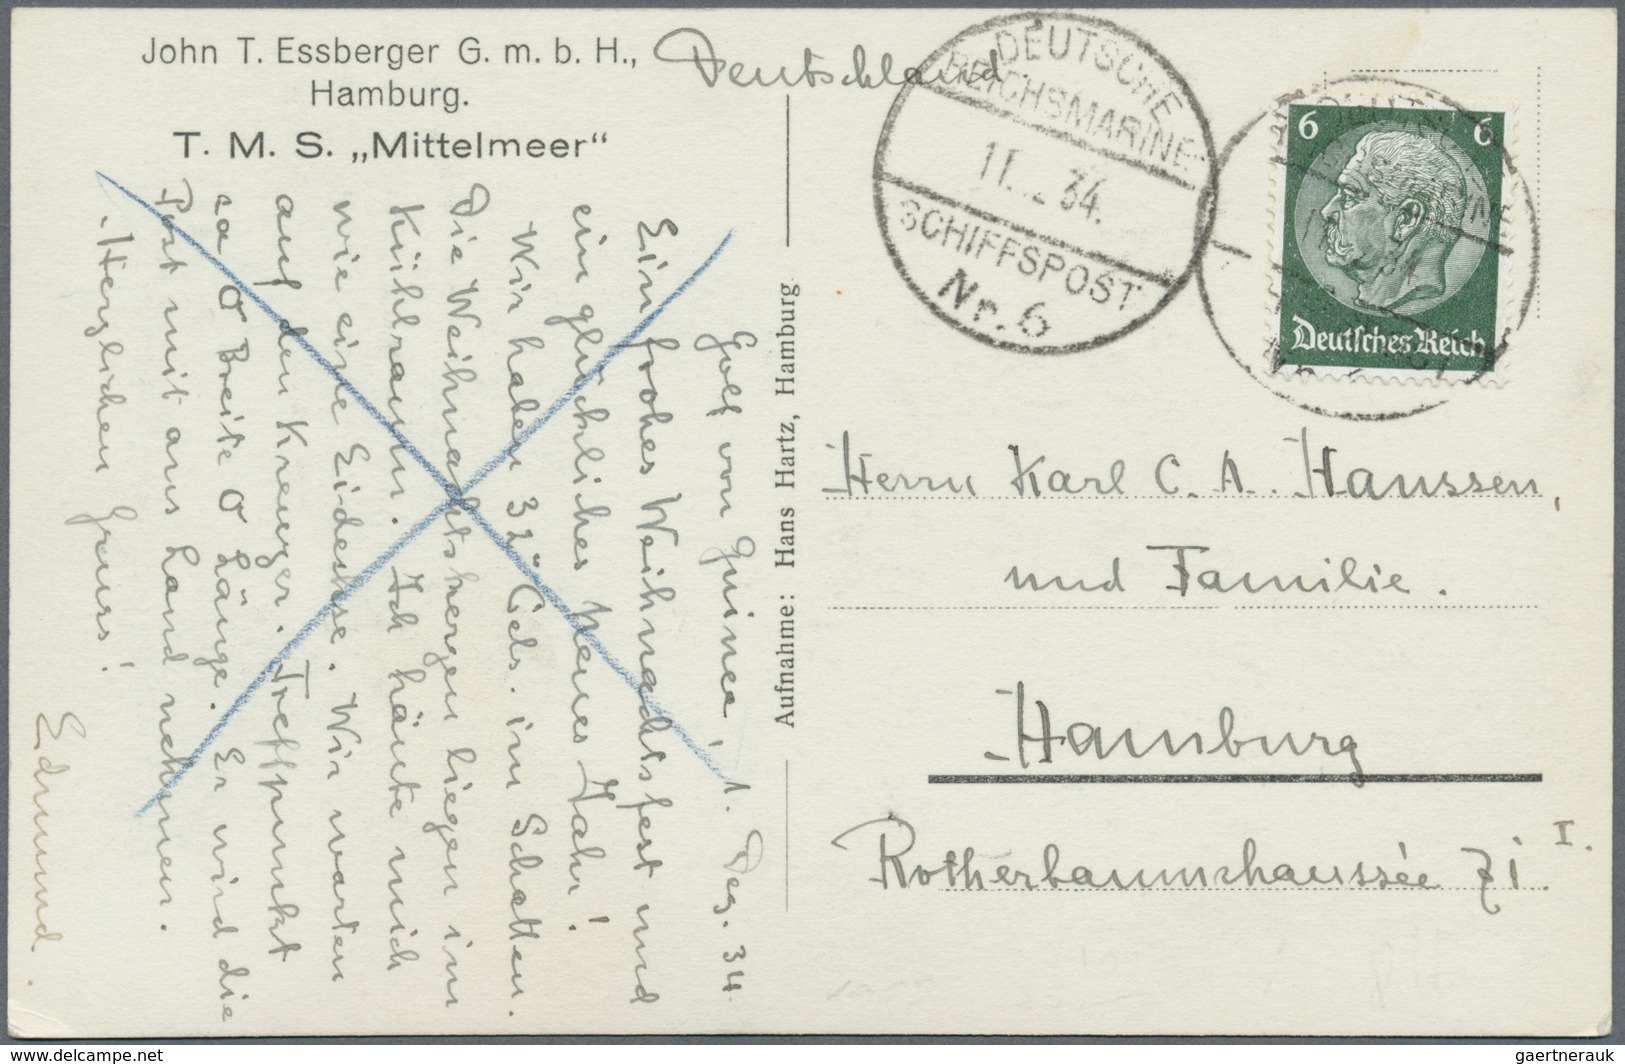 John T. Essberger G. m. b. H.,
Hamburg.
T. M. S. „Mittelmeer“
Deutschland
DEUTSCHE
REICHSMARINE
11. 34.
SCHIFFSPOST
Nr. 6
6 6
Deutsches Reich
Golf von Guinea, 1. Dez. 34.
Ein frohes Weihnachtsfest und
ein glückliches neues Jahr!
Wir haben 32° Cels. im Schatten.
Die Weihnachtskerzen liegen im
Kühlraum. Ich häute mich
wie eine Eidechse. Wir warten
auf den Kreuzer. Treffpunkt
ca 0 Breite 0 Länge. Er wird die
Post mit ans Land nehmen.
Herzlichen Gruss!
Edmund.
Aufnahme: Hans Hartz, Hamburg
Herrn Karl C. A. Haussen,
und Familie.
Hamburg
Rotherbaumchaussée 71 I.
www.delcampe.net
gaertnerauk